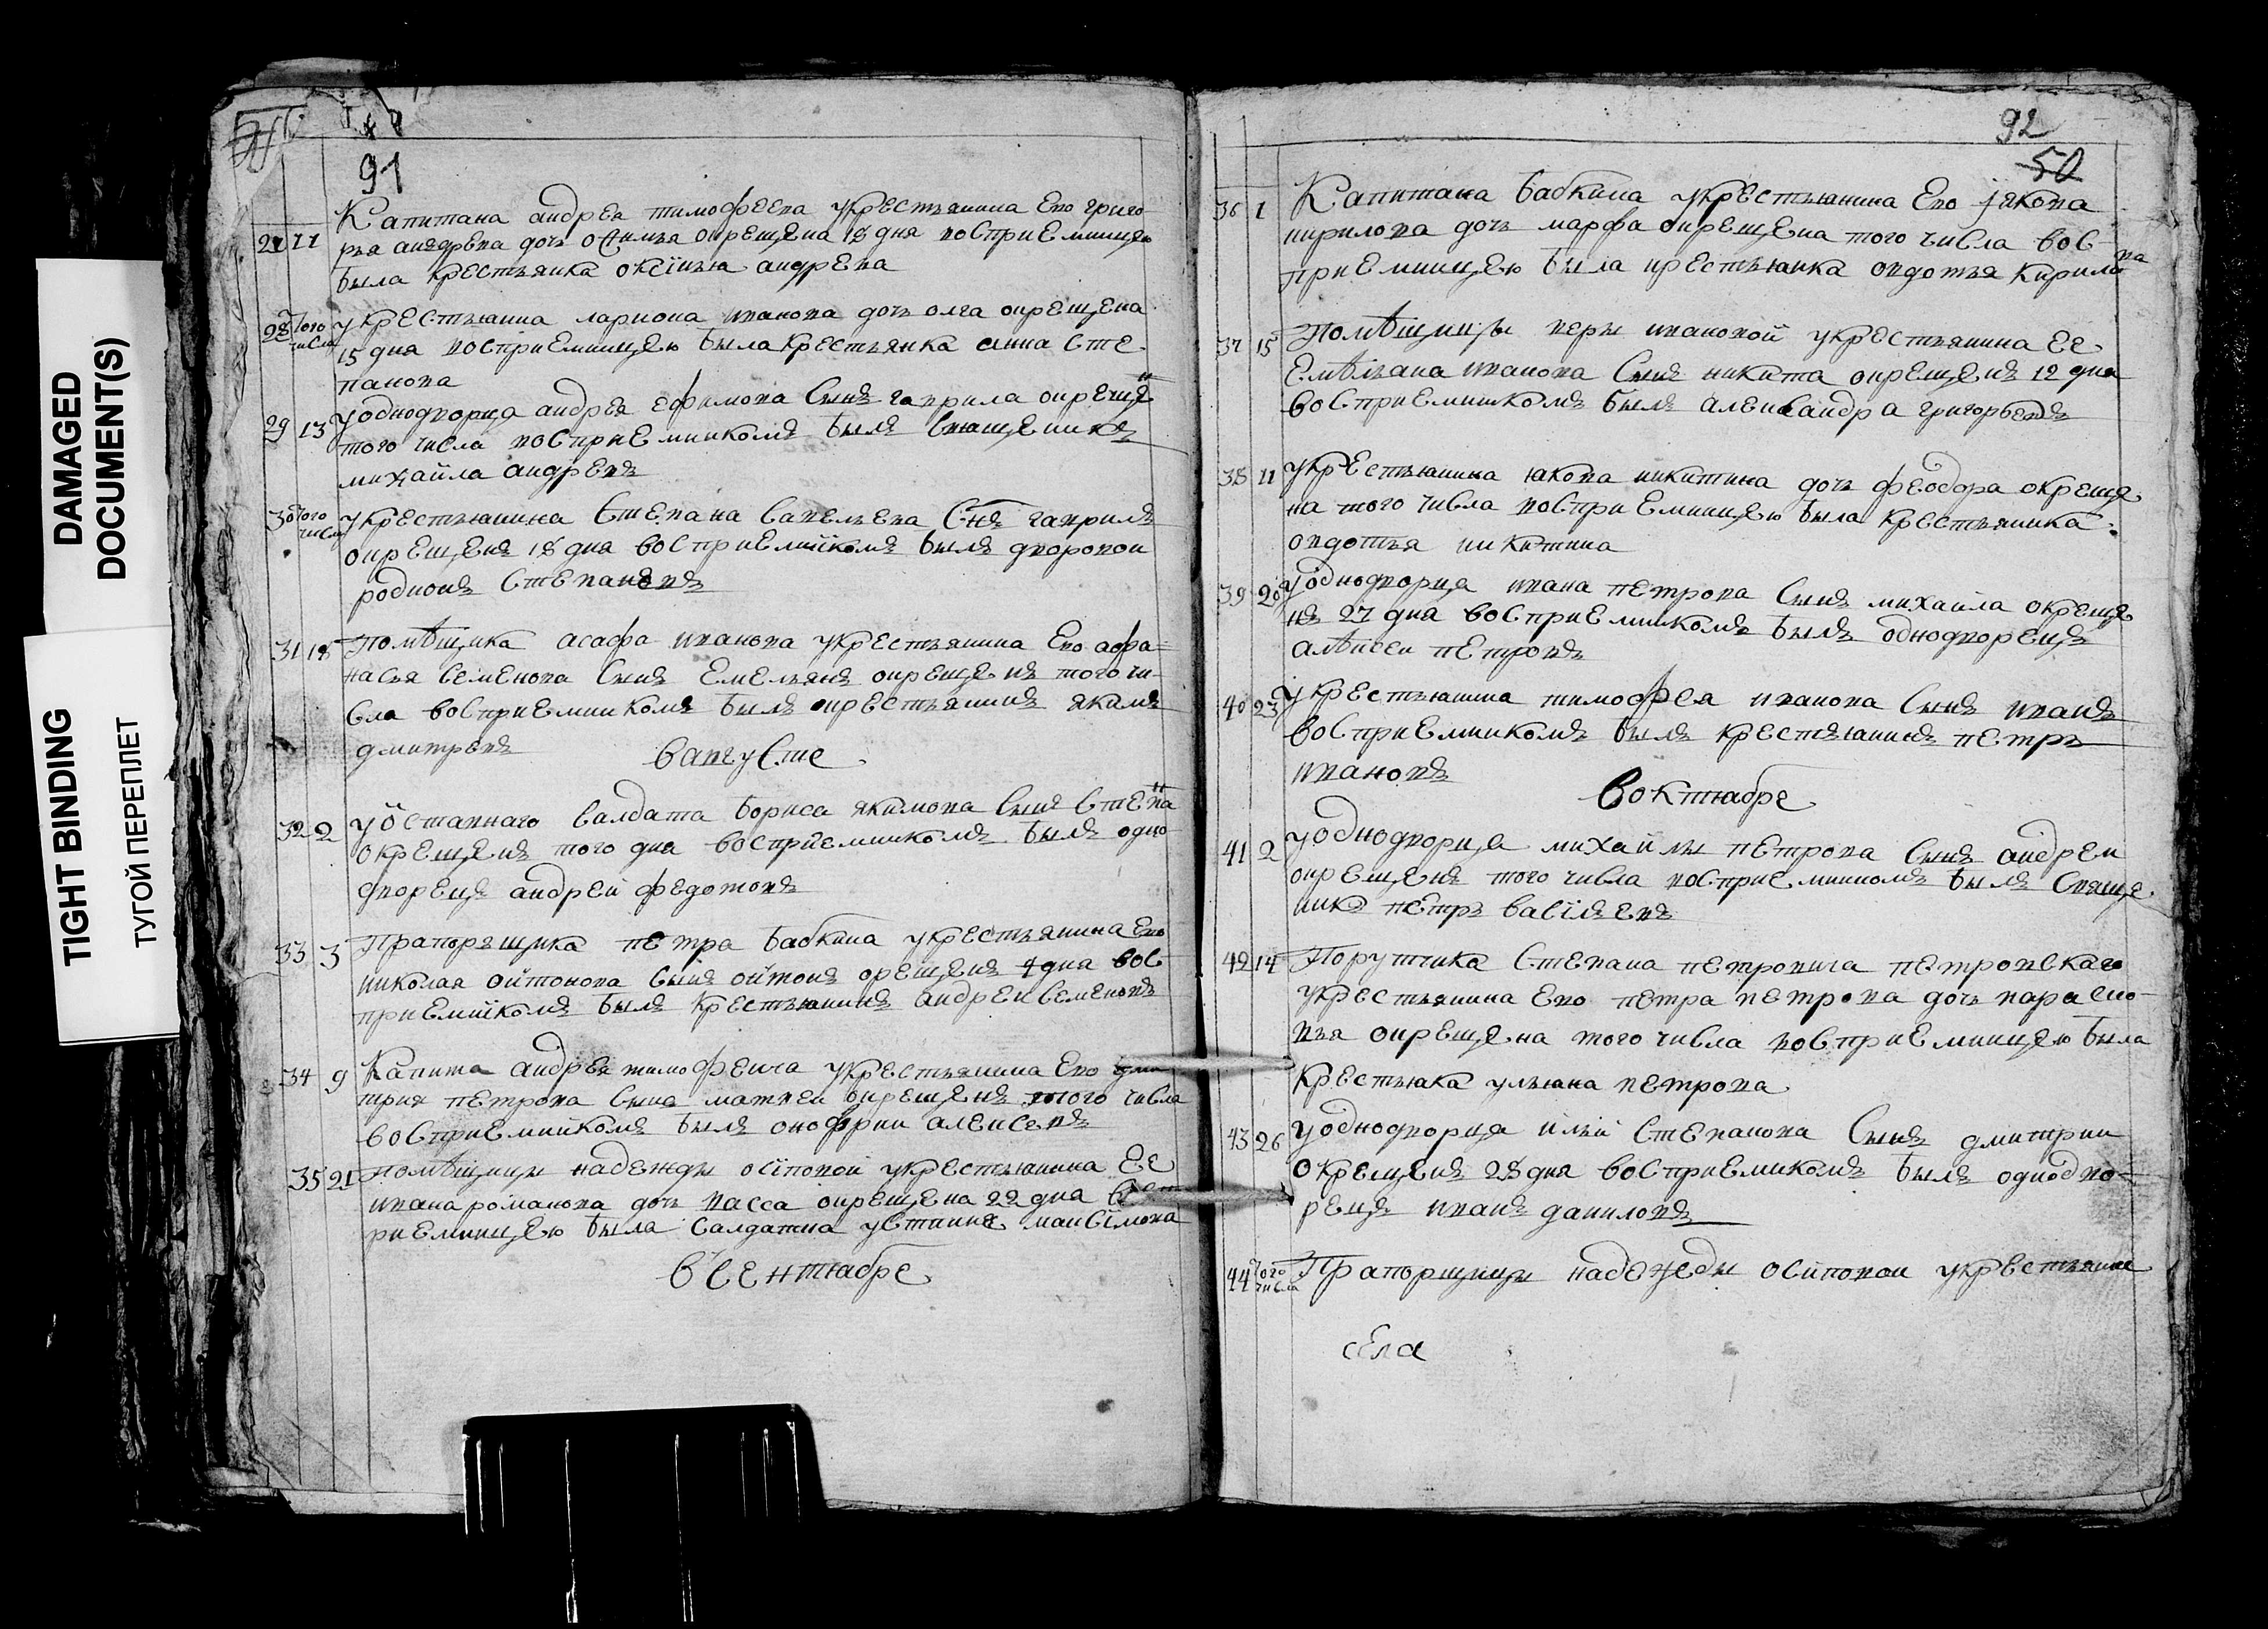 DAMAGED
DOCUMENT(S)
TIGHT BINDING
ТУГОЙ ПЕРЕПЛЕТ
91
27 11 Капитана андрея тимофеева укрестьянина Ево григо
рья андрева дочь офимья окрещена 18 дня восприемницею
была крестьянка оксинья андрева
28 того числа укрестьянина лариона иванова дочь олга окрещена
15 дня восприемницею была крестьянка анна Сте
панова
29 13 уоднодворца андрея ефимова Сынъ гаврила окрещен
того числа восприемникомъ былъ Священникъ
михайла андревъ
30 того числа укрестьянина Степана Савельева Снъ гаврилъ
окрещенъ 18 дня восприемникомъ былъ дворовои
родионъ Степановъ
31 18 Помѣщика асафа иванова укрестьянина Ево афа=
насья Семенова Сынъ Емельянъ окрещенъ того чи-
сла восприемникомъ былъ крестьянинъ якимъ
дмитревъ
Вавгусте
32 2 уотставнаго Салдата бориса якимова Сынъ Степан
окрещенъ того дня восприемникомъ былъ одно-
дворецъ андрей федотовъ
33 3 Прапорщика петра бабкина укрестьянина Ево
николая онтонова Сынъ онтонъ крещенъ 4 дня вос
приемникомъ былъ крестьянинъ андреи Семеновъ
34 9 Капита андрея тимофеича укрестьянина Ево дми
трия петрова Сынъ матвеи окрещенъ того числа
восприемникомъ былъ онофрии алексевъ
35 21 помѣщицы надежды осиповой укрестьянина Ее
ивана романова дочь васса окрещена 22 дня восп
риемницею была Салдатка устинья максимова
в Сентябре
92
50
36 1 Капитана бабкина укрестьянина Ево якова
кирилова дочь марфа окрещена того числа вос-
приемницею была крестьянка овдотья Кирилова
37 15 Помѣщицы веры ивановой укрестьянина Ее
Емѣльяна иванова Сынъ никита окрещенъ 12 дня
восприемникомъ былъ александра григорьевъ
38 11 укрестьянина якова никитина дочь феодора окреще
на того числа восприемницею была крестьянка
овдотья никитина
39 20 уоднодворца ивана петрова Сынъ михайла окреще
нъ 27 дня восприемникомъ былъ однодворецъ
алѣксеи петровъ
40 23 укрестьянина тимофея иванова Сынъ иванъ
восприемникомъ былъ крестьянинъ петръ
ивановъ
Воктябре
41 2 уоднодворца михайлы петрова Сынъ андреи
окрещенъ того числа восприемникомъ былъ Свяще
никъ петръ василевъ
42 14 Порутчика Степана петровича петровскаго
укрестьянина Ево петра петрова дочь параско-
вья окрещена того числа восприемницею была
крестьяка ульяна петрова
43 26 уоднодворца ильи Степанова Сынъ дмитрии
окрещенъ 28 дня восприемикомъ былъ однодво=
рецъ иванъ даниловъ
44 того числа Прапорщицы надежды осиповои укрестьянина
села